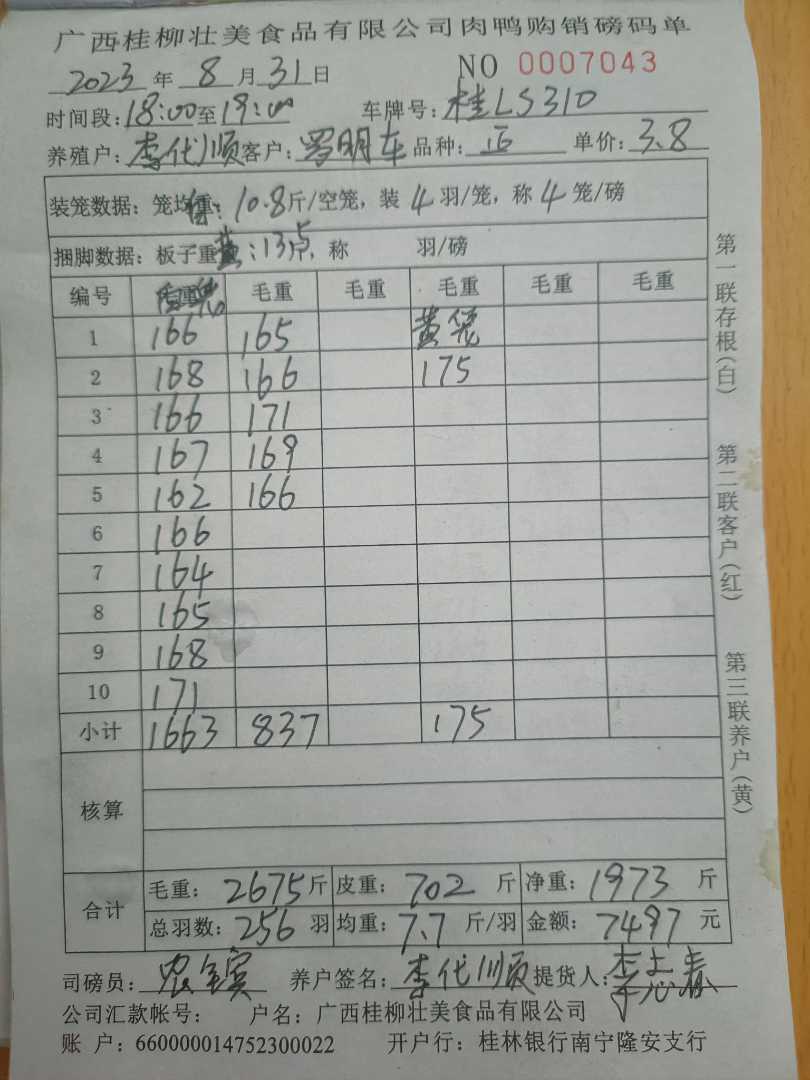 广西桂柳壮美食品有限公司肉鸭购销磅码单
2023年8月31日 NO 0007043
时间段:18:00至19:00 车牌号:桂LS310
养殖户:李代顺 客户:罗明车 品种:正 单价:3.8
装笼数据:笼均重:10.8斤/空笼,装4羽/笼,称4笼/磅
捆脚数据:板子重 黄:13点,称 羽/磅
编号 毛重 毛重 毛重 毛重 毛重
1 166 165 黄笼
2 168 166 175
3 166 171
4 167 169
5 162 166
6 166
7 164
8 165
9 168
10 171
小计 1663 837 175
核算
合计 毛重:2675斤 皮重:702斤 净重:1973斤
总羽数:256羽 均重:7.7斤/羽 金额:7497元
司磅员: 养户签名:李代顺 提货人:
公司汇款帐号: 户名:广西桂柳壮美食品有限公司
账 户:660000014752300022 开户行:桂林银行南宁隆安支行
第一联存根(白)
第二联客户(红)
第三联养户(黄)